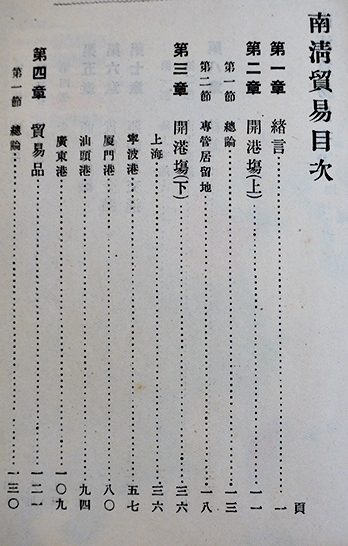 南淸貿易目次
頁
第一章 緖言……一
第二章 開港塲(上)……一一
第一節 總論……一三
第二節 專管居留地……一八
第三章 開港塲(下)……三六
上海……三六
寧波港……五七
厦門港……八〇
汕頭港……九四
廣東港……一〇九
第四章 貿易品……一二一
第一節 總論……一三〇